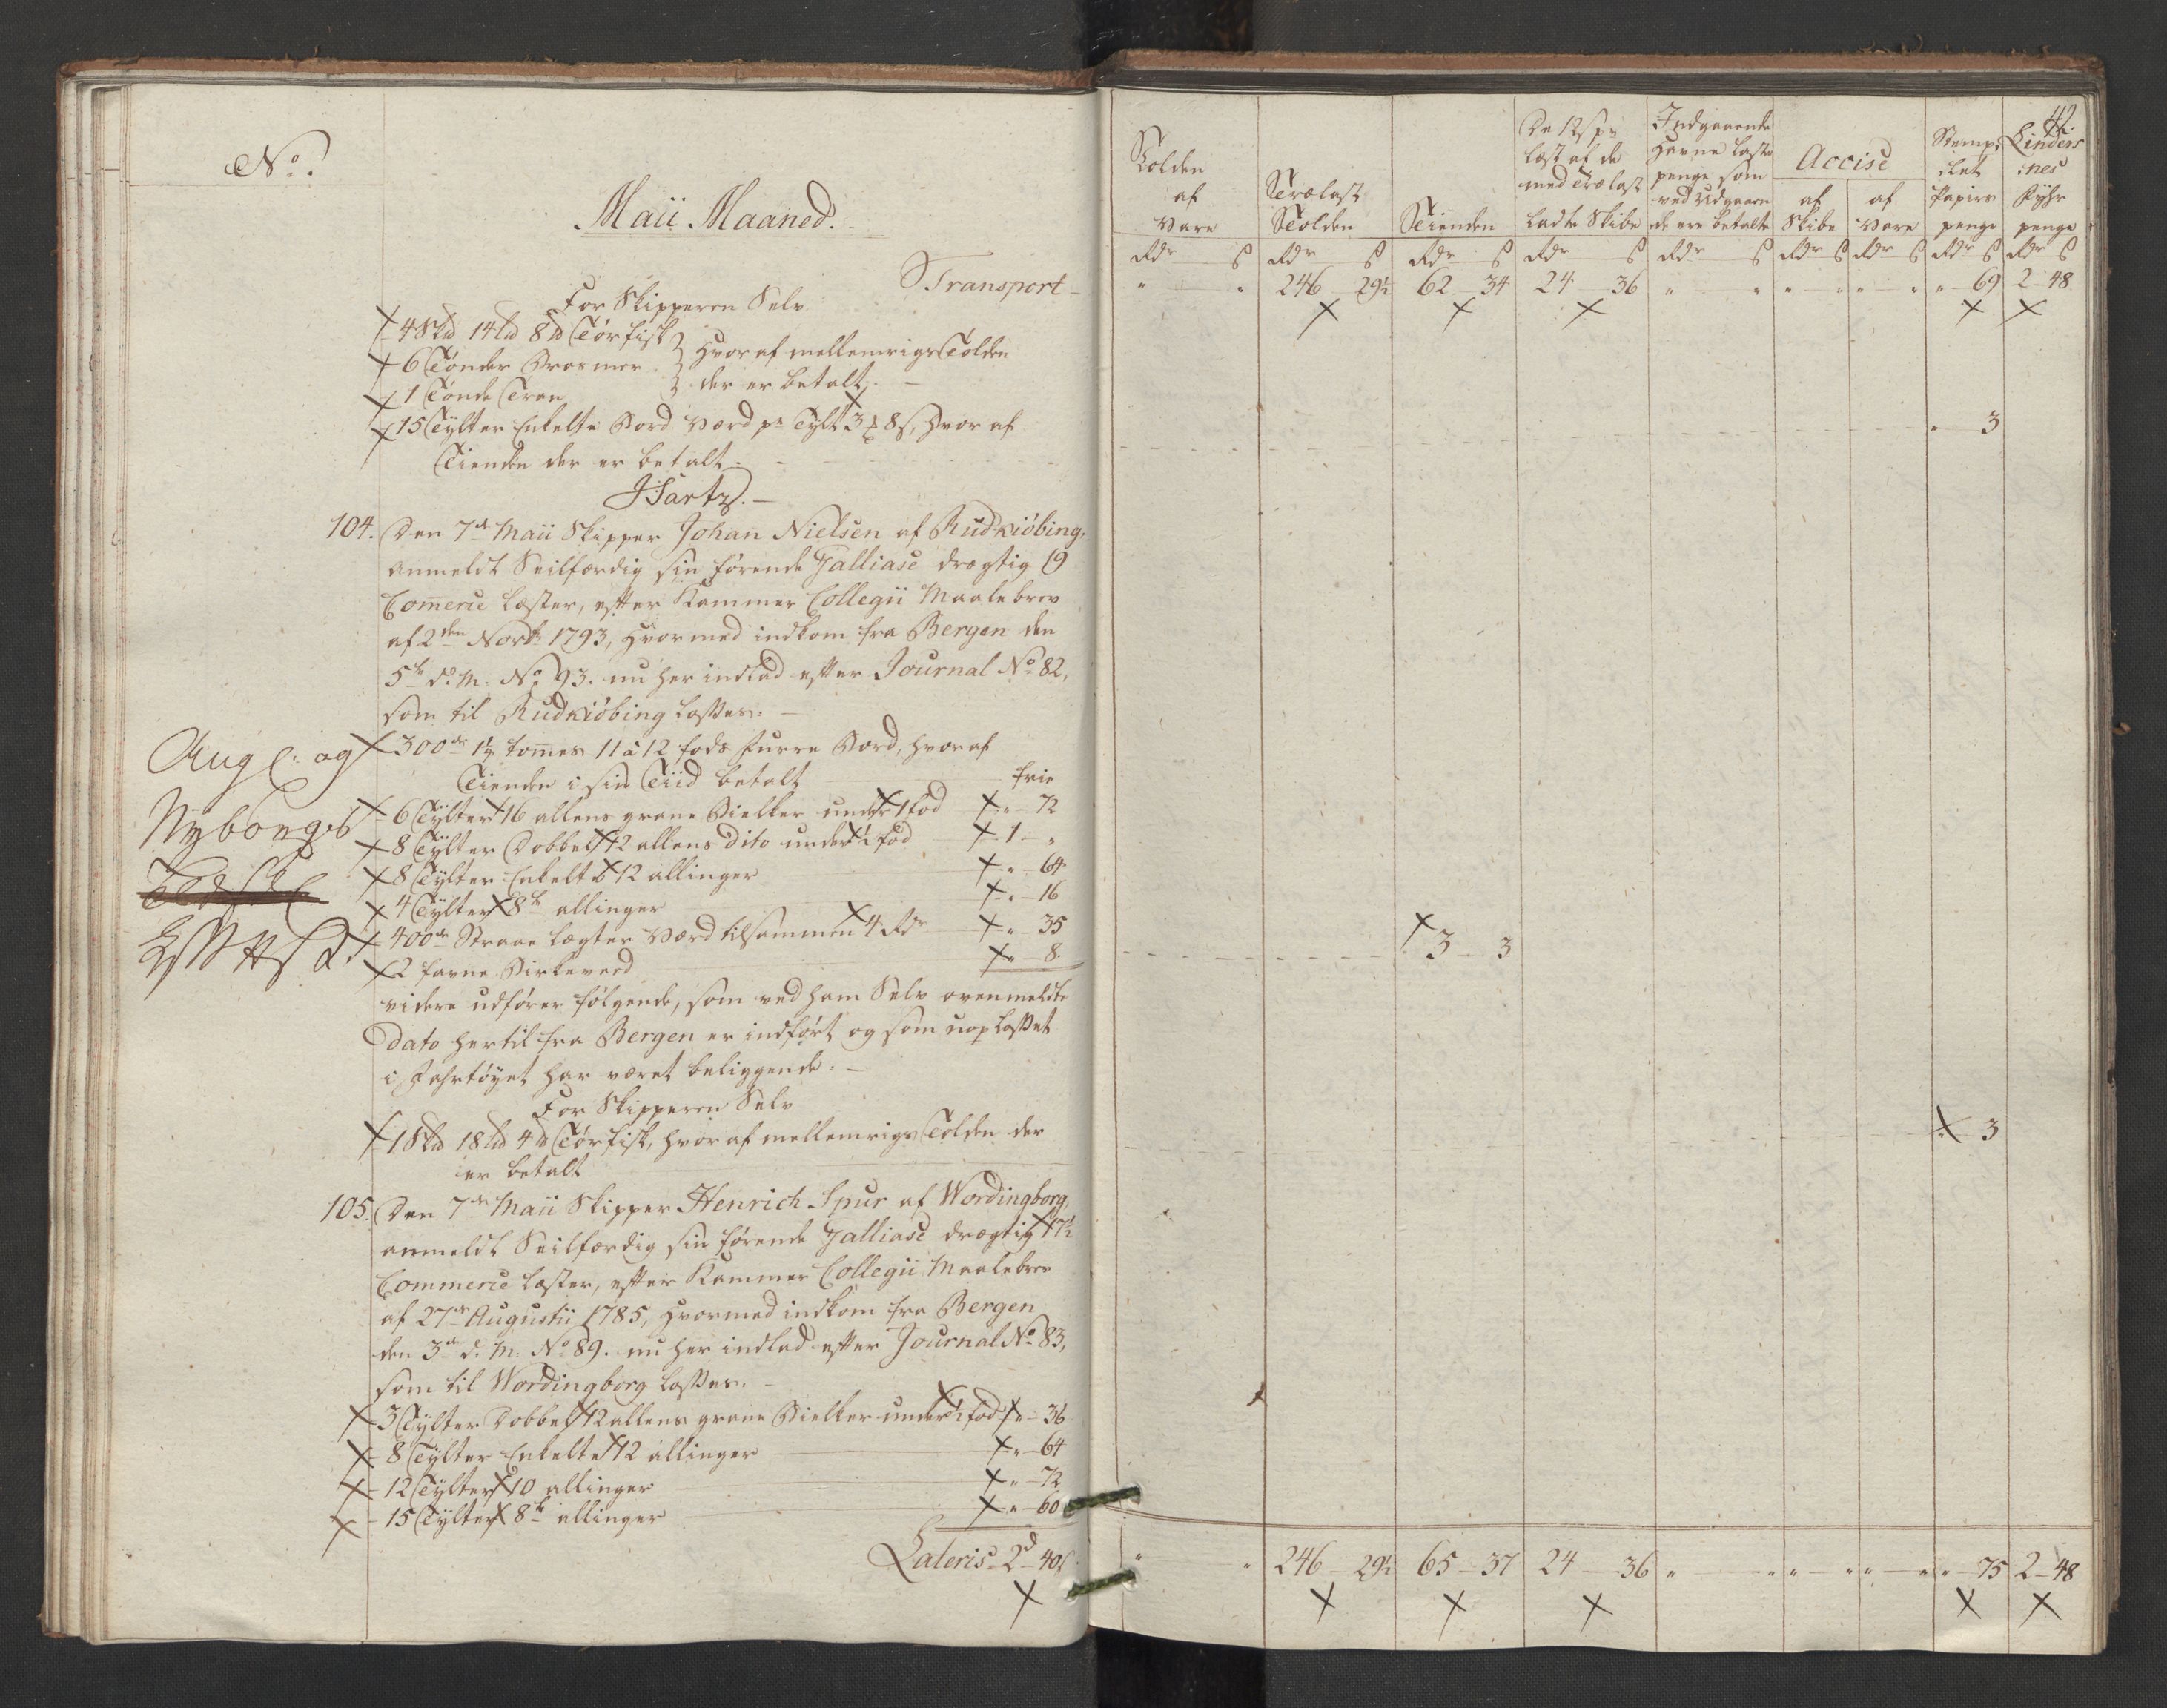 No.
Maii Maaned.
Transport
For Skipperen Selv
4 Sk℔ 14 L℔ 8 ℔ Tørfisk
6 Tønder Brosmer
1 Tønde Tran
hvoraf mellemrigs Tolden
der er betalt.
15 Tylter Enkelte Bord værd pr Tylt 3 8 s, hvoraf
Tienden der er betalt
104. Den 7de Maii Skipper Johan Nielsen af Rudkiøbing,
anmeldt Seilfærdig sin førende Galliase drægtig 19
Comerce Læster, efter Kammer Collegii Maalebrev
af 2den Novbr 1793, hvormed indkom fra Bergen den
5te d. M. No 93. nu her indlad efter Journal No 82,
som til Rudkiøbing losses.
300de 1½ tommes 11 à 12 fods Furre Bord, hvoraf
Tienden i sin Tiid betalt frie
6 Tylter 16 allens grane Bielker under 1 fod " 72
8 Tylter Dobbelt 12 allens dito under ½ fod 1 "
8 Tylter Enkelte 12 allinger " 64
4 Tylter 8te allinger " 16
400de Straae lægter værd tilsammen 4 Rdr " 35
2 favne Birkeved " 8.
videre udfører følgende, som ved ham Selv ovenmeldte
Dato hertil fra Bergen er indført og som uoplosset
i Fahrtøyet har været beliggende.
For Skipperen Selv
1 Sk℔ 18 L℔ 4 ℔ Tørfisk, hvoraf mellemrigs Tolden der
er betalt
105. Den 7de Maii Skipper Henrich Spur af Wordingborg,
anmeldt Seilfærdig sin førende Jalliase drægtig 17½
Commerce Læster, efter Kammer Collegii Maalebrev
af 27de Augustii 1785, hvormed indkom fra Bergen
den 3de d. M. No 89. nu her indlad efter Journal No 83,
som til Wordingborg losses.
3 Tylter Dobbelt 12 allens grane Bielker under ½ fod " 36
8 Tylter Enkelte 12 allinger " 64
12 Tylter 10 allinger " 72
15 Tylter 8te allinger " 60
Lateris 2d 40s
42.
Tolden af Vare
Trælast Tolden
Tienden
De 12 s pr læst af de med Trælast ladte Skibe
Indgaaende Havne Laste penge som ved Udgaaende ere betalte
Accise
af Skibe
af Vare
Stemplet Papiirs penge
Linders nes Fyhr penge
Rdr s Rdr s Rdr s Rdr s Rdr s Rdr s Rdr s Rdr s Rdr s
" " 246 29½ 62 34 24 36 " " " " " " " 69 2 48
" 3
3 3
" 3
" " 246 29½ 65 37 24 36 " " " " " " " 75 2 48